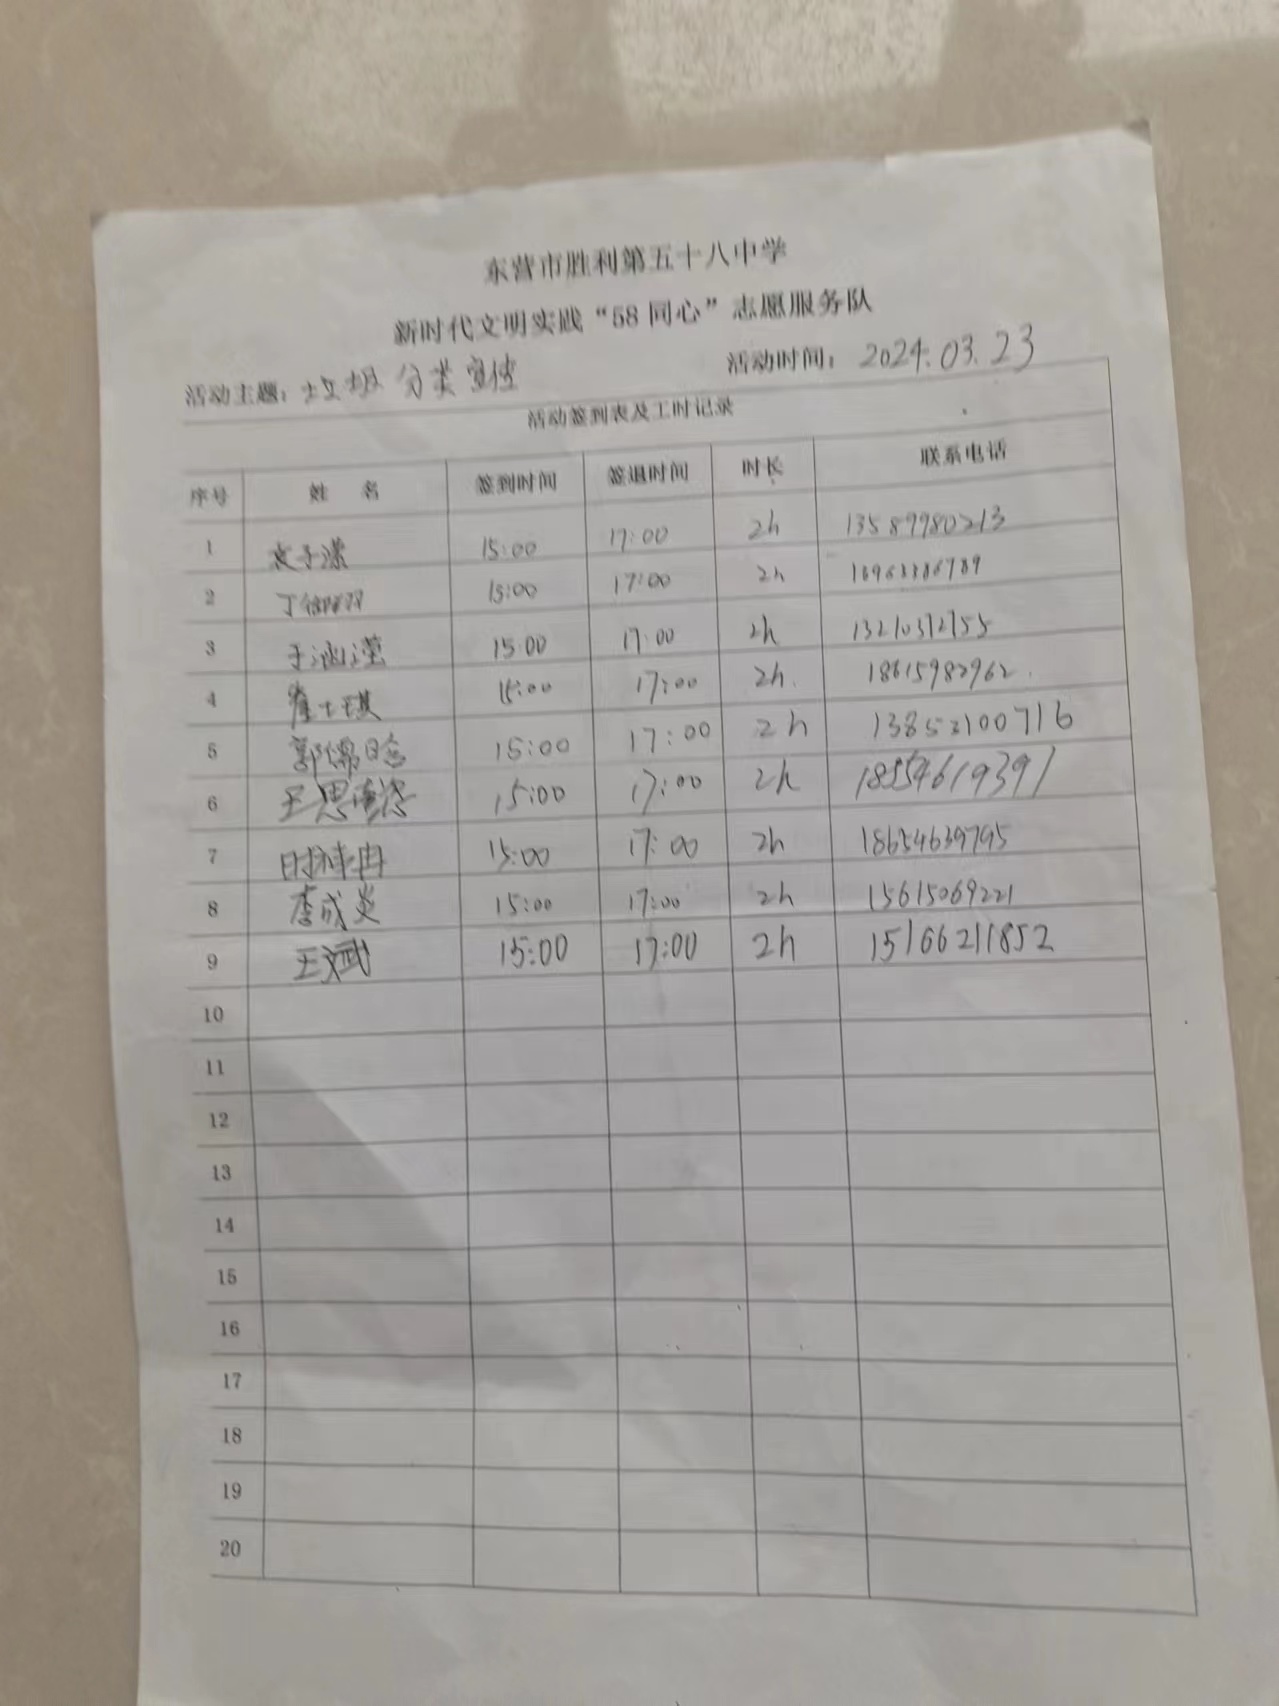 东营市胜利第五十八中学
新时代文明实践“58同心”志愿服务队
活动主题：垃圾分类宣传 活动时间：2024.03.23
活动签到表及工时记录
序号 姓 名 签到时间 签退时间 时长 联系电话
1 袁子潆 15:00 17:00 2h 13589980213
2 15:00 17:00 2h
3 于涵滢 15:00 17:00 2h
4 崔士琪 15:00 17:00 2h. 18615982962.
5 郭儒晗 15:00 17:00 2h 13853100716
6 15:00 17:00 2h 18554619391
7 15:00 17:00 2h 18654639795
8 李成炎 15:00 17:00 2h 15615069221
9 王斌 15:00 17:00 2h 15166211852
10
11
12
13
14
15
16
17
18
19
20